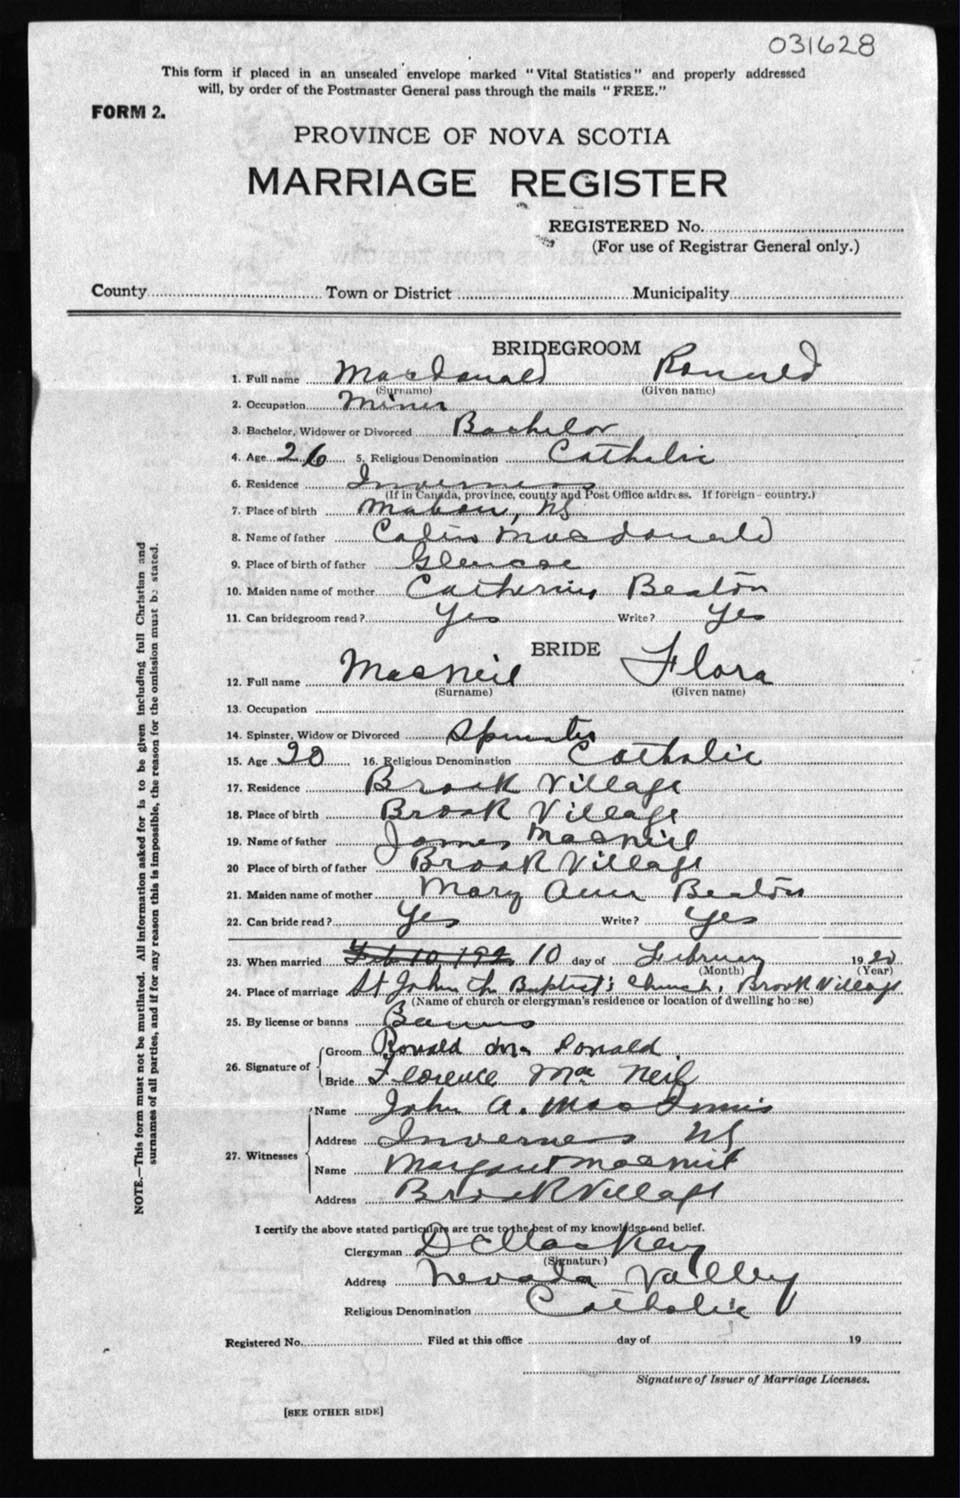 031628
This form if placed in an unsealed envelope marked "Vital Statistics" and properly addressed
will, by order of the Postmaster General pass through the mails "FREE."
FORM 2.
PROVINCE OF NOVA SCOTIA
MARRIAGE REGISTER
REGISTERED No.
(For use of Registrar General only.)
County Town or District Municipality
BRIDEGROOM
1. Full name MacDonald Ronald
(Surname) (Given name)
2. Occupation Miner
3. Bachelor, Widower or Divorced Bachelor
4. Age 26 5. Religious Denomination Catholic
6. Residence Inverness
(If in Canada, province, county and Post Office address. If foreign - country.)
7. Place of birth Mabou, NS
8. Name of father MacDonald
9. Place of birth of father Glencoe
10. Maiden name of mother Catherine Beaton
11. Can bridegroom read? Yes Write? Yes
BRIDE
12. Full name MacNeil Flora
(Surname) (Given name)
13. Occupation
14. Spinster, Widow or Divorced Spinster
15. Age 20 16. Religious Denomination Catholic
17. Residence Brook Village
18. Place of birth Brook Village
19. Name of father James MacNeil
20 Place of birth of father Brook Village
21. Maiden name of mother Mary Ann Beaton
22. Can bride read? Yes Write? Yes
23. When married Feb 10, 192 10 day of February 1920
(Month) (Year)
24. Place of marriage St John the Baptist's Church, Brook Village
(Name of church or clergyman's residence or location of dwelling house)
25. By license or banns Banns
26. Signature of Groom Ronald Mc Donald
Bride Florence Mac Neil
27. Witnesses
Name John A. MacInnis
Address Inverness NS
Name Margaret MacNeil
Address Brook Village
I certify the above stated particulars are true to the best of my knowledge and belief.
Clergyman
(Signature)
Address Nevada Valley
Religious Denomination Catholic
Registered No. Filed at this office day of 19
Signature of Issuer of Marriage Licenses.
[SEE OTHER SIDE]
NOTE.—This form must not be mutilated. All information asked for is to be given including full Christian and
surnames of all parties, and if for any reason this is impossible, the reason for the omission must be stated.